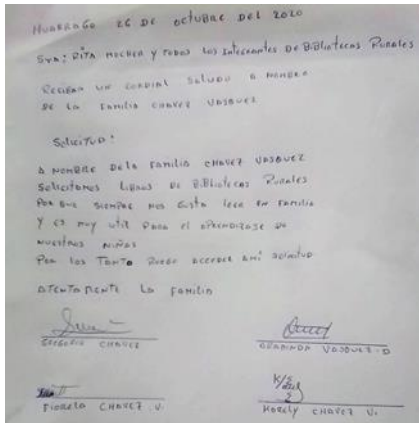 HUARRAGO 26 DE OCTUBRE DEL 2020
Sra: RITA MOCKER Y TODOS LOS INTEGRANTES DE BIBLIOTECAS RURALES
RECIBAN UN CORDIAL SALUDO A NOMBRE
DE LA FAMILIA CHAVEZ VASQUEZ
SOLICITUD:
A NOMBRE DE LA FAMILIA CHAVEZ VASQUEZ
SOLICITAMOS LIBROS DE BIBLIOTECAS RURALES
POR QUE SIEMPRE NOS GUSTA LEER EN FAMILIA
Y ES MUY UTIL PARA EL APRENDIZAJE DE
NUESTROS NIÑOS
POR LOS TANTO RUEGO ACCEDER AMI SOLICITUD
ATENTAMENTE LA FAMILIA
GREGORIO CHAVEZ
VASQUEZ .D
FIORELA CHAVEZ .V.
CHAVEZ V.